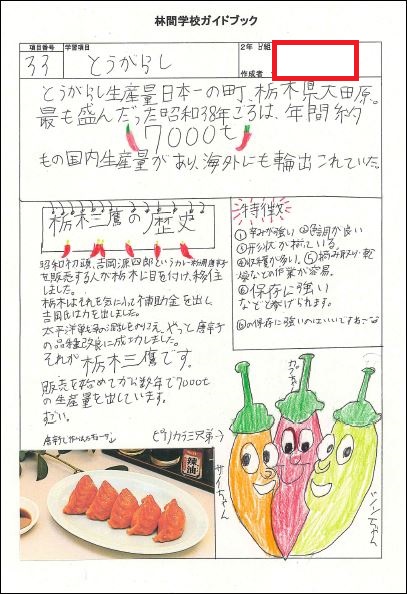 林間学校ガイドブック
項目番号 学習項目 2年 B組
33 とうがらし 作成者
とうがらし生産量日本一の町、栃木県大田原。
最も盛んだった昭和38年ごろは、年間約
7000t
もの国内生産量があり、海外にも輸出されていた。
栃木三鷹の歴史
昭和初頭、吉岡源四郎というカレー粉用唐辛子
を販売する人が栃木に目を付け、移住
しました。
栃木はそれを気に入って補助金を出し、
吉岡氏は力を出しました。
太平洋戦争の混乱をのりこえ、やっと唐辛子
の品種改良に成功しました。
それが栃木三鷹です。
販売を始めてから数年で7000t
の生産量を出しています。
すごい。
特徴
①辛みが強い ②色調が良い
③形状が揃っている。
④収穫が多い。⑤摘み取り・乾
燥などの作業が容易。
⑥保存に強い
などと挙げられます。
⑥の保存に強いのはいいですねこな
ピリカラ三兄弟→
辣油
サイちゃん